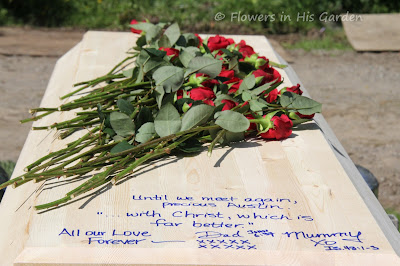 © Flowers in His Garden
Until we meet again,
precious Austin.
"... with Christ, which is
far better"
All our Love Dad Mummy
Forever — xxxxx XO
xxxxx Is. 43:1-3